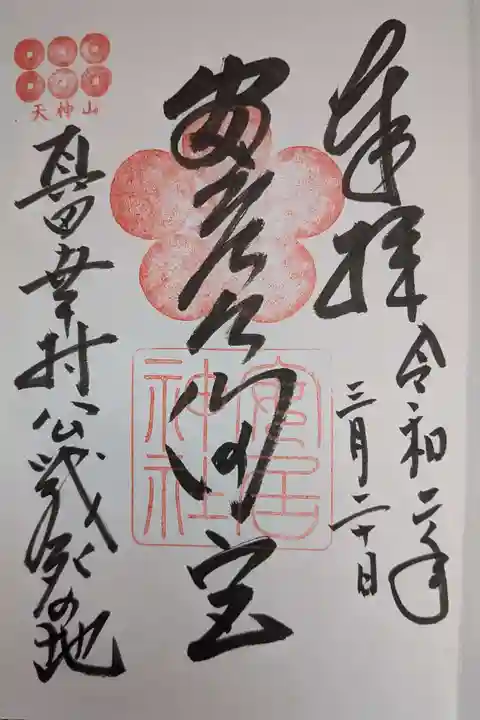 奉拝
令和二年
三月二十日
安居天満宮
安居神社
天神山
真田幸村公戦死の地